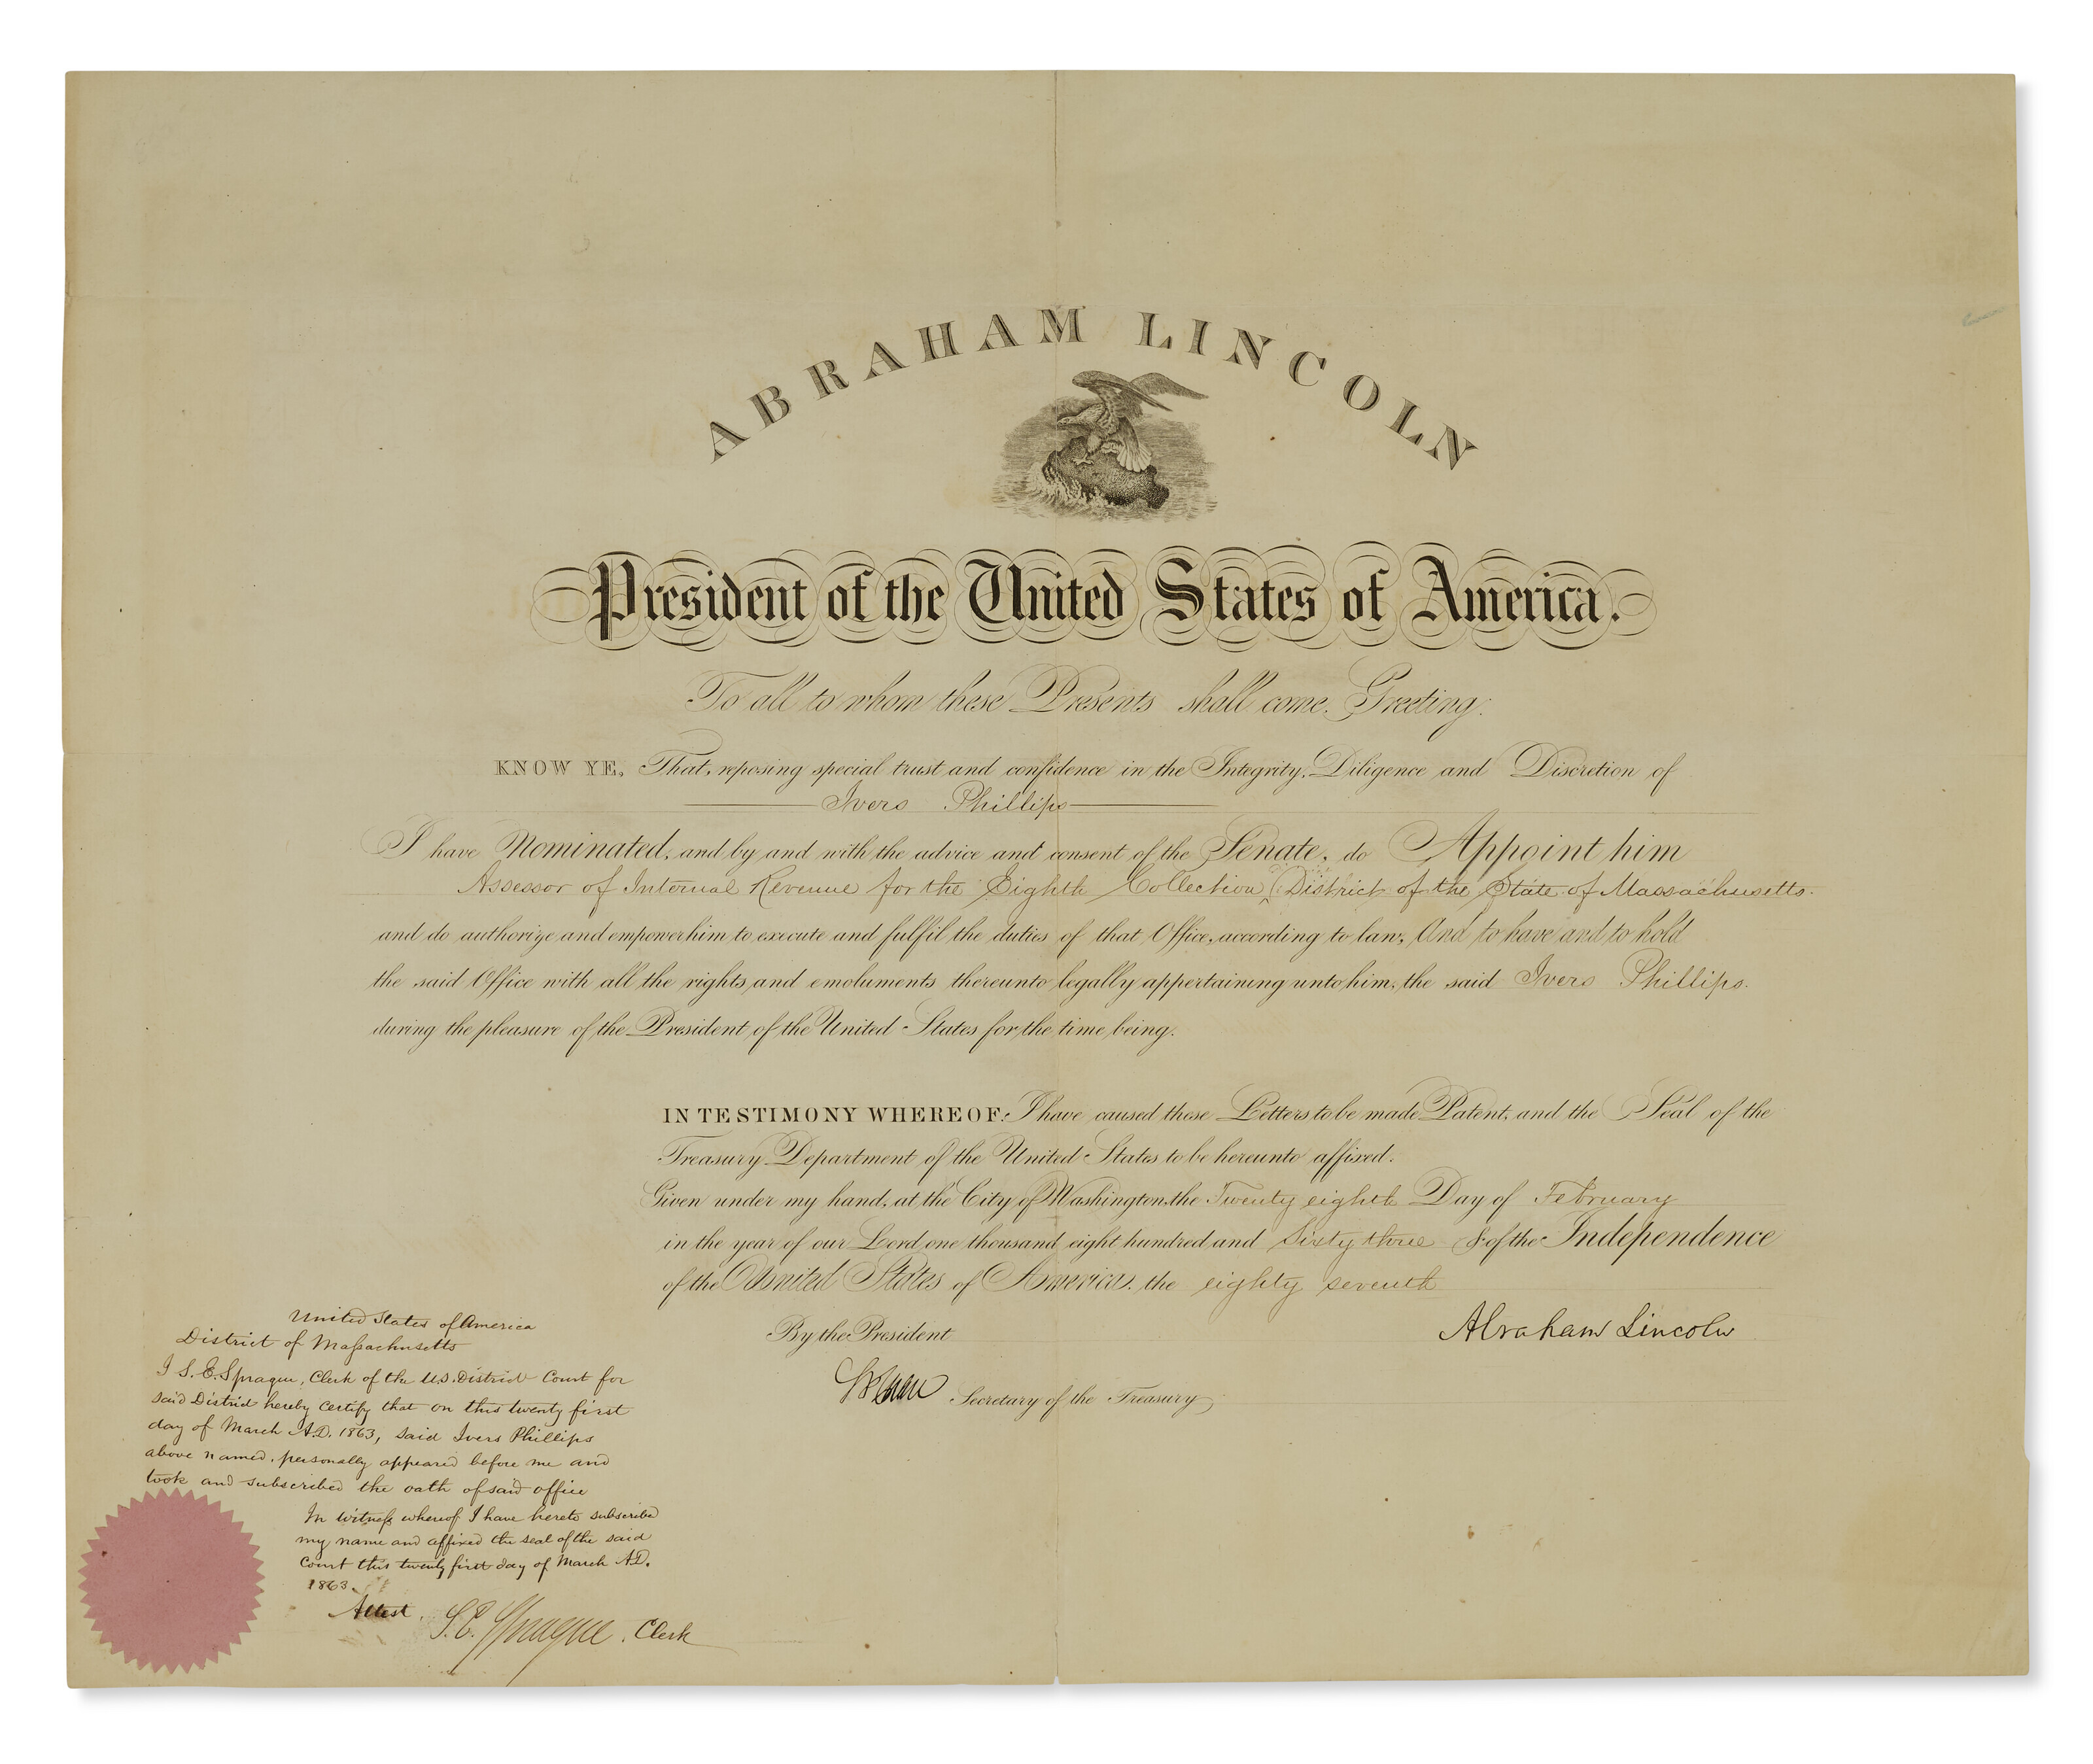 ABRAHAM LINCOLN
President of the United States of America.
To all to whom these Presents shall come, Greeting:
KNOW YE, That, reposing special trust and confidence in the Integrity, Diligence and Discretion of
Ivers Phillips
I have Nominated, and by and with the advice and consent of the Senate, do Appoint him
Assessor of Internal Revenue for the Eighth Collection District of the State of Massachusetts.
and do authorize and empower him to execute and fulfil the duties of that Office, according to law, And to have and to hold
the said Office with all the rights and emoluments thereunto legally appertaining unto him, the said Ivers Phillips.
during the pleasure of the President of the United States for the time being.
IN TESTIMONY WHEREOF: I have caused these Letters to be made Patent, and the Seal of the
Treasury Department of the United States to be hereunto affixed.
Given under my hand, at the City of Washington, the Twenty eighth Day of February
in the year of our Lord one thousand eight hundred and Sixty three & of the Independence
of the United States of America, the eighty seventh
By the President
Abraham Lincoln
Secretary of the Treasury
United States of America
District of Massachusetts
I S. E. Sprague, Clerk of the U.S. District Court for
said District hereby certify that on this twenty first
day of March A.D. 1863, said Ivers Phillips
above named, personally appeared before me and
took and subscribed the oath of said office
In witness whereof I have hereto subscribed
my name and affixed the seal of the said
Court this twenty first day of March A.D.
1863.
Attest,
S. E. Sprague, Clerk